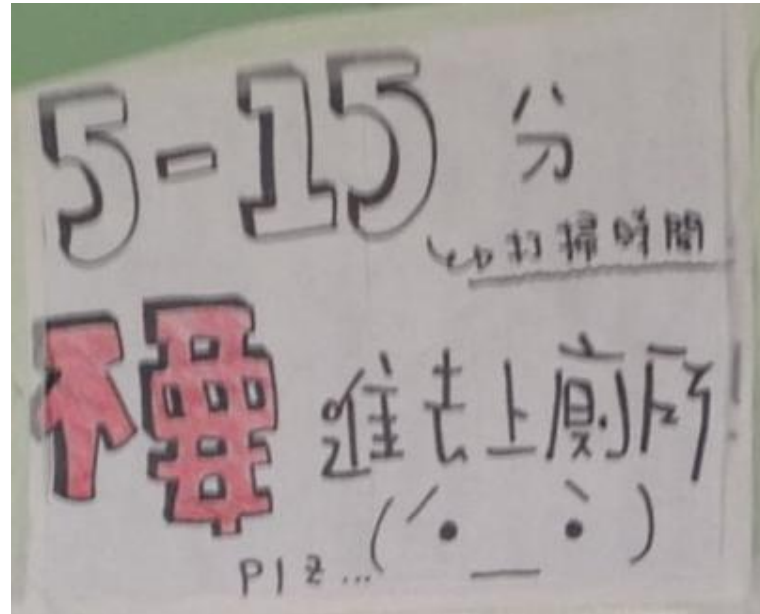 5-15 分
打掃時間
不要 進去上廁所!
Plz...(´•__•`)